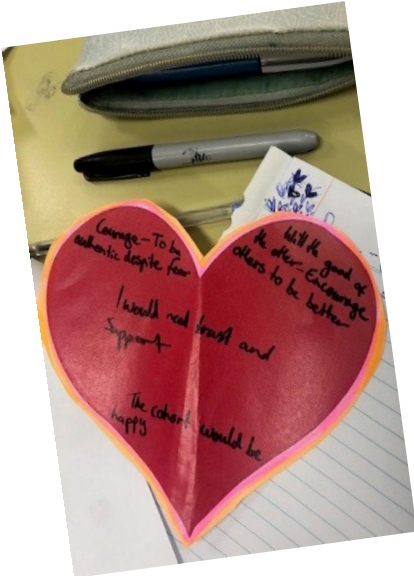 Courage - To be
authentic despite fear
Will the good of
the other - Encourage
others to be better
I would need trust and
support
The cohort would be
happy